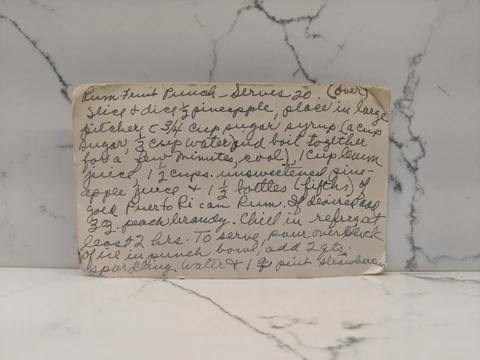 Rum Fruit Punch - Serves 20. (over)
Slice & dice ½ pineapple, place in large
pitcher c̄ ¾ cup sugar syrup (a cup
sugar ⅔ cup water and boil together
for a few minutes, cool), 1 cup lemon
juice, 1½ cups. unsweetened pine-
apple juice & 1½ bottles (fifths) of
gold Puerto Rican Rum. If desired add
3 oz. peach brandy. Chill in refreg at
least 2 hrs. To serve, pour over block
of ice in punch bowl, add 2 qts.
sparkling water & 1 pint strawberries